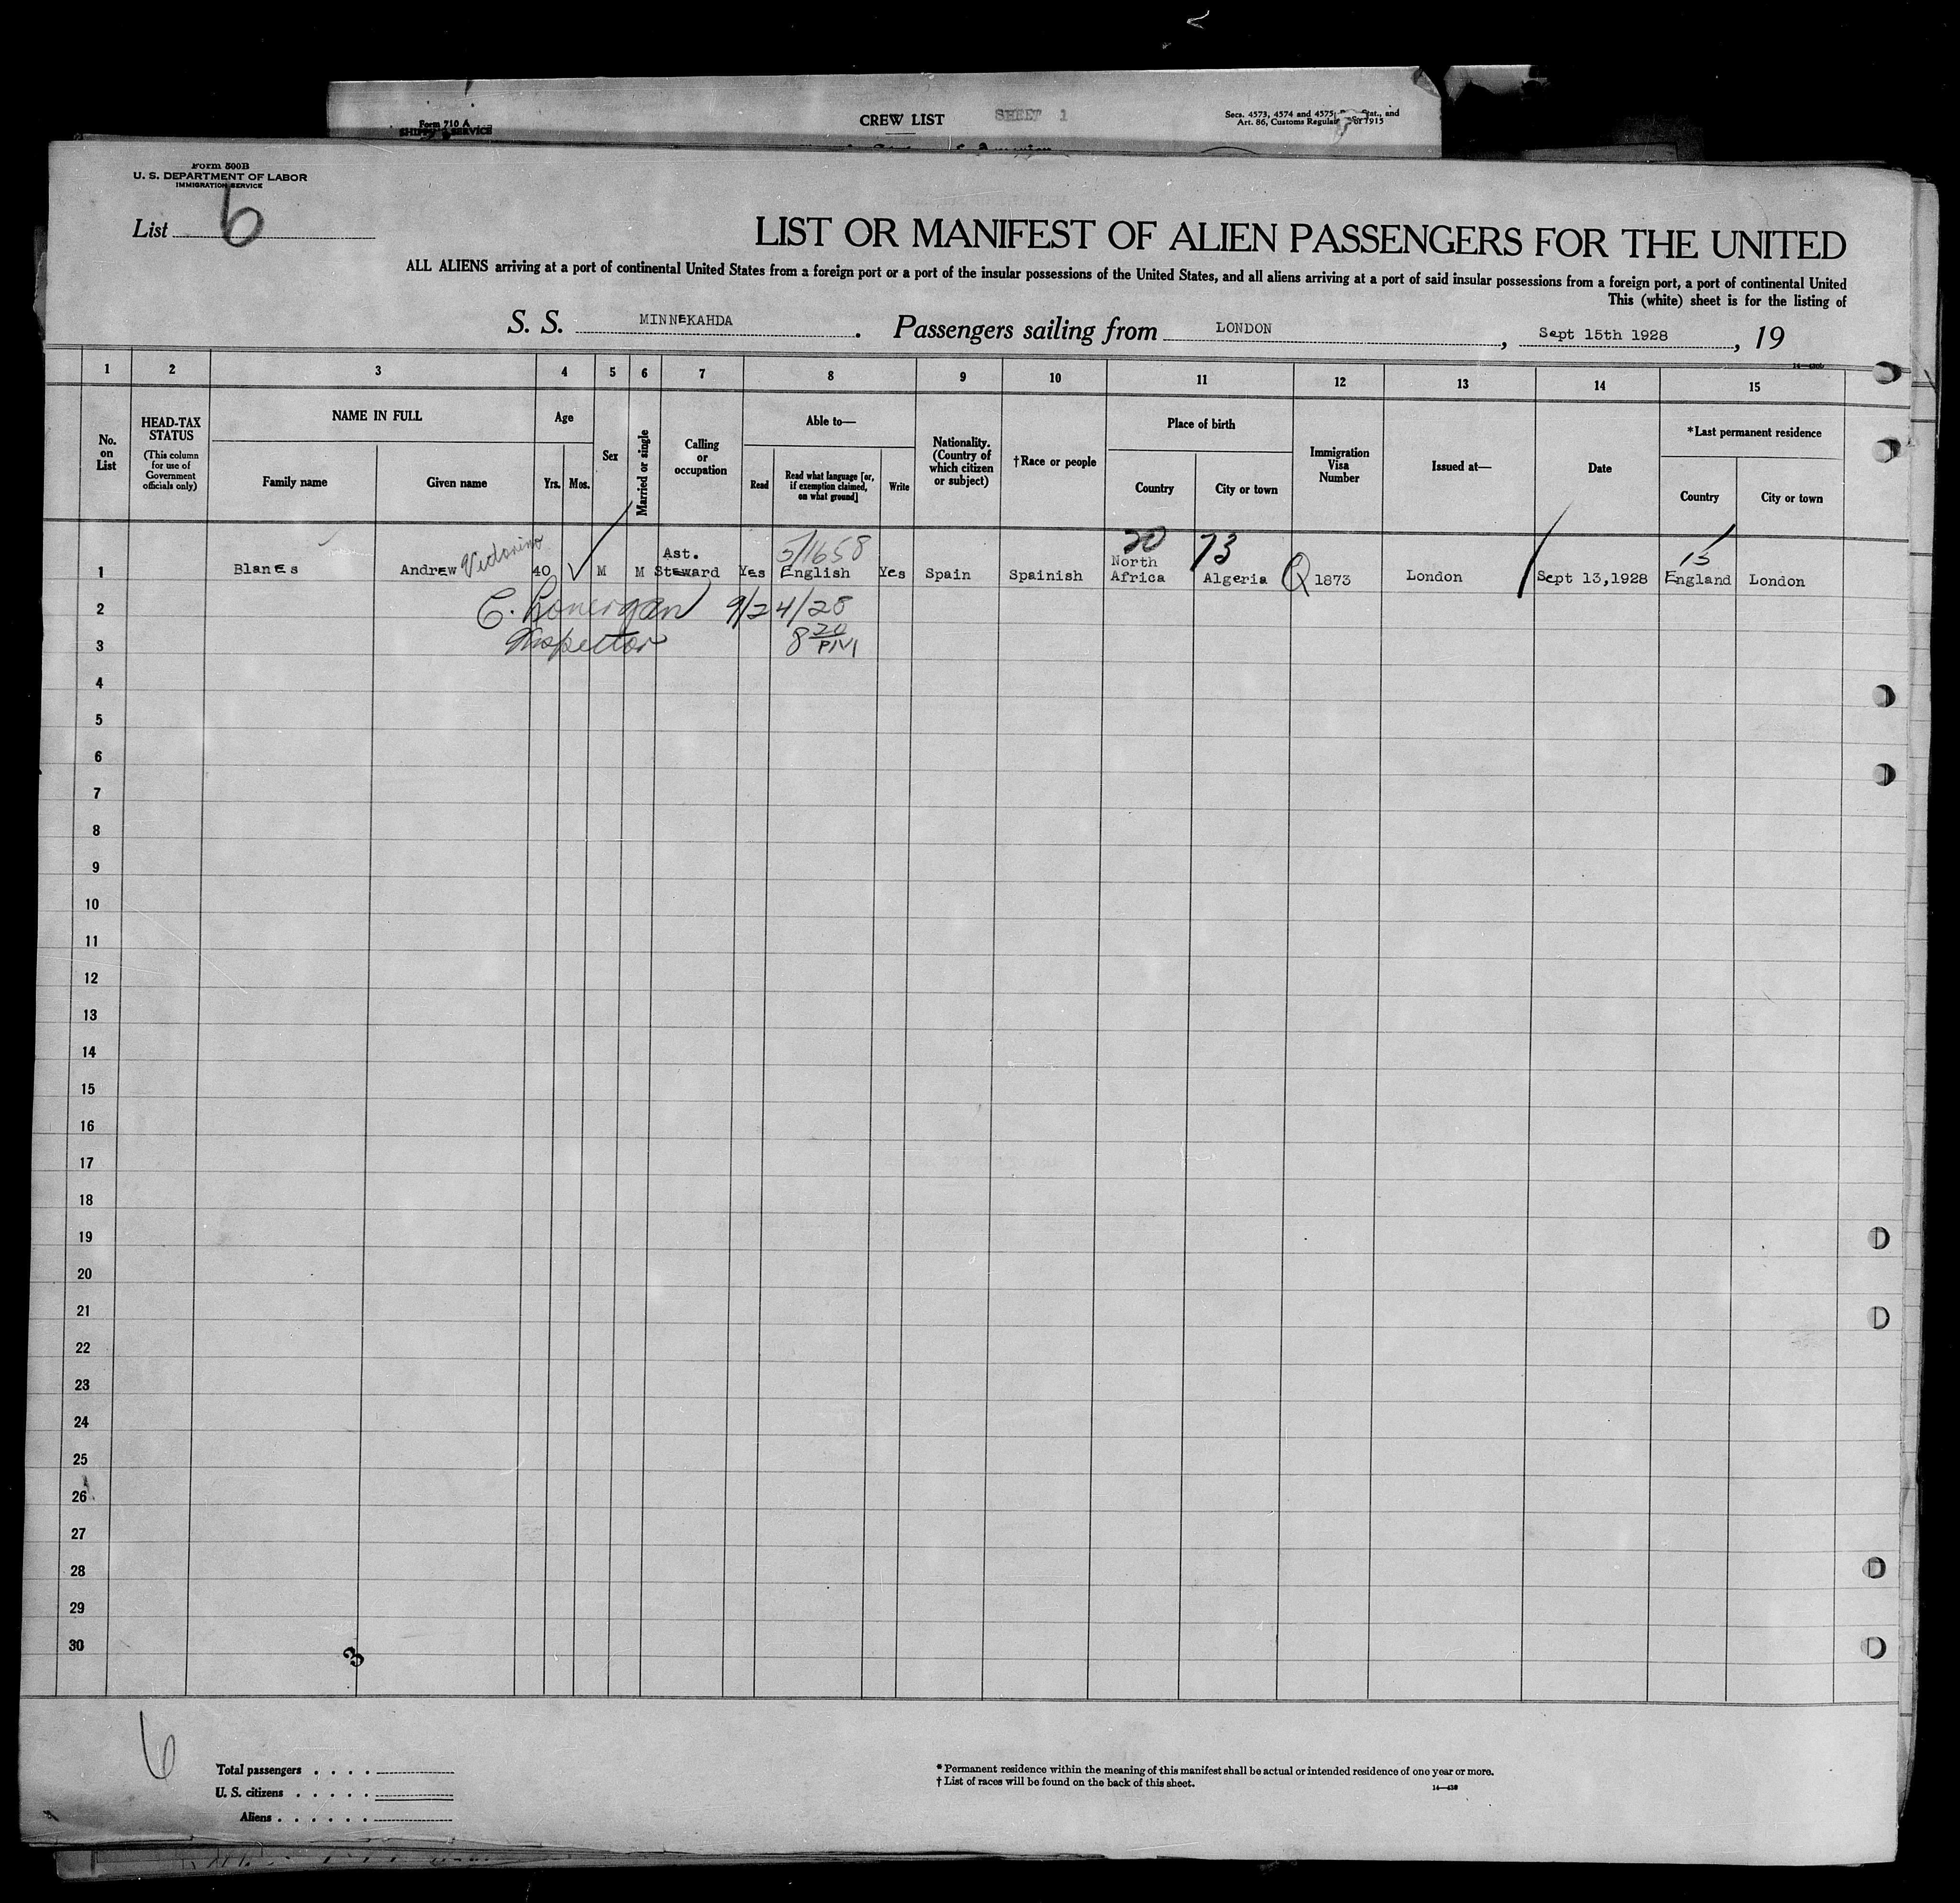 Form 710 A
SHIPP'G SERVICE
CREW LIST
SHEET 1
Secs. 4573, 4574 and 4575, Stat., and
Art. 86, Customs Regula of 1915
Form 500B
U. S. DEPARTMENT OF LABOR
IMMIGRATION SERVICE
List 6
LIST OR MANIFEST OF ALIEN PASSENGERS FOR THE UNITED
ALL ALIENS arriving at a port of continental United States from a foreign port or a port of the insular possessions of the United States, and all aliens arriving at a port of said insular possessions from a foreign port, a port of continental United
This (white) sheet is for the listing of
S. S. MINNEKAHDA. Passengers sailing from LONDON, Sept 15th 1928, 19
14—430b
1 2 3 4 5 6 7 8 9 10 11 12 13 14 15
No. on List
HEAD-TAX STATUS
(This column for use of Government officials only)
NAME IN FULL
Family name
Given name
Age
Yrs.
Mos.
Sex
Married or single
Calling or occupation
Able to—
Read
Read what language [or, if exemption claimed, on what ground]
Write
Nationality. (Country of which citizen or subject)
†Race or people
Place of birth
Country
City or town
Immigration Visa Number
Issued at—
Date
*Last permanent residence
Country
City or town
5/1658 20 73 15
1 Blanes Andrew Victorino 40 M M Ast. Steward Yes English Yes Spain Spainish North Africa Algeria Q 1873 London Sept 13,1928 England London
2 C. Lonergan 9/24/28
3 Inspector 8 20 PM
4
5
6
7
8
9
10
11
12
13
14
15
16
17
18
19
20
21
22
23
24
25
26
27
28
29
30
3
6
Total passengers . . . .
U. S. citizens . . . . .
Aliens . . . . . .
* Permanent residence within the meaning of this manifest shall be actual or intended residence of one year or more.
† List of races will be found on the back of this sheet.
14—430